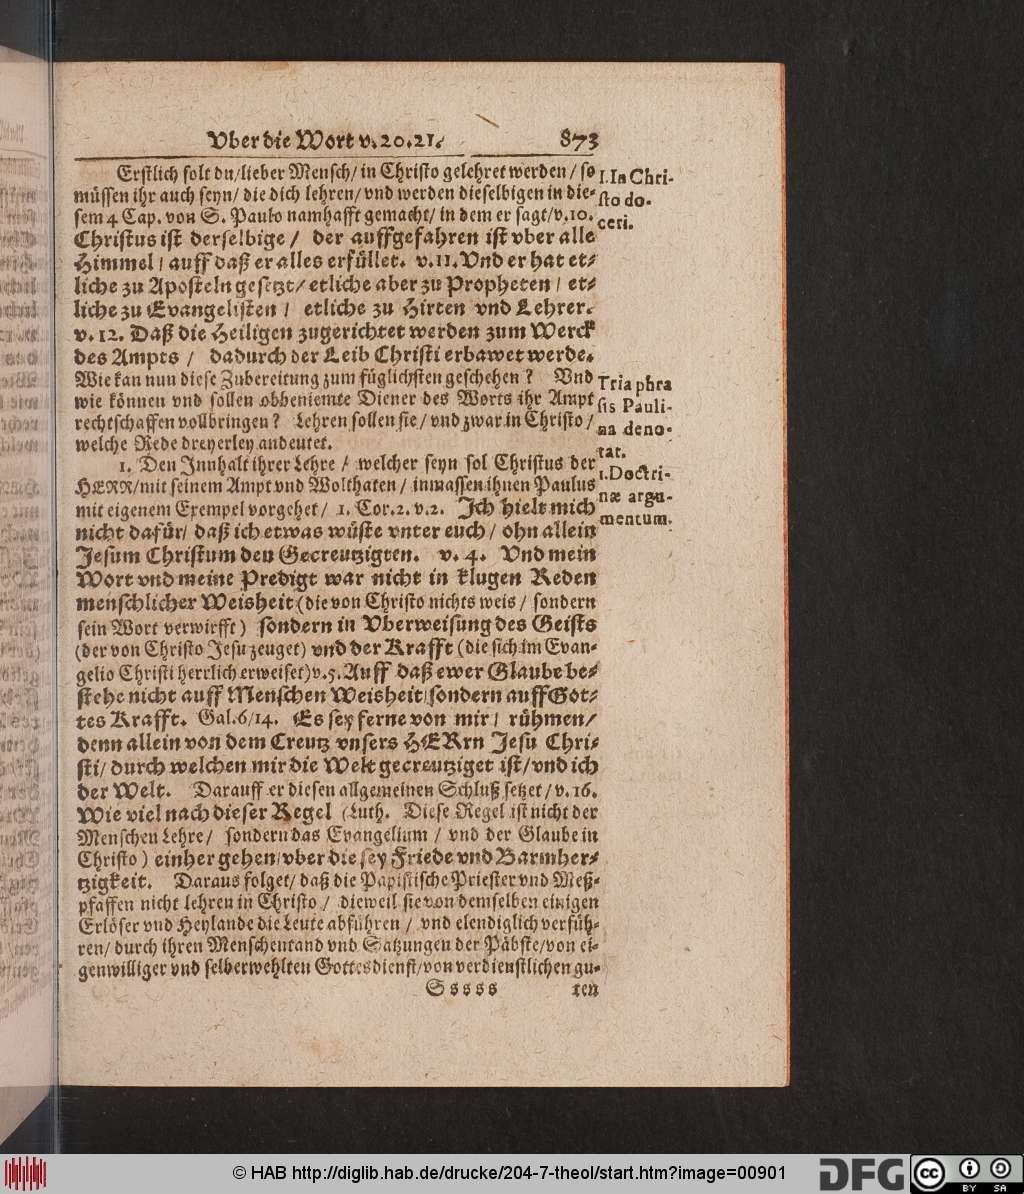 Vber die Wort v. 20. 21. 873
Erstlich solt du / lieber Mensch / in Christo gelehret werden / so
müssen ihr auch seyn / die dich lehren / vnd werden dieselbigen in die-
sem 4 Cap. von S. Paulo namhafft gemacht / in dem er sagt / v. 10.
Christus ist derselbige / der auffgefahren ist vber alle
Himmel / auff daß er alles erfüllet. v. 11. Vnd er hat et-
liche zu Aposteln gesetzt / etliche aber zu Propheten / et-
liche zu Evangelisten / etliche zu Hirten vnd Lehrer.
v. 12. Daß die Heiligen zugerichtet werden zum Werck
des Ampts / dadurch der Leib Christi erbawet werde.
Wie kan nun diese Zubereitung zum füglichsten geschehen? Vnd
wie können vnd sollen obbeniemte Diener des Worts ihr Ampt
rechtschaffen vollbringen? Lehren sollen sie / vnd zwar in Christo /
welche Rede dreyerley andeutet.
1. Den Innhalt ihrer Lehre / welcher seyn sol Christus der
HERR / mit seinem Ampt vnd Wolthaten / inmassen ihnen Paulus
mit eigenem Exempel vorgehet / 1. Cor. 2. v. 2. Ich hielt mich
nicht dafür / daß ich etwas wüste vnter euch / ohn allein
Jesum Christum den Gecreutzigten. v. 4. Vnd mein
Wort vnd meine Predigt war nicht in klugen Reden
menschlicher Weisheit (die von Christo nichts weis / sondern
sein Wort verwirfft) sondern in Vberweisung des Geists
(der von Christo Jesu zeuget) vnd der Krafft (die sich im Evan-
gelio Christi herrlich erweiset) v. 5. Auff daß ewer Glaube be-
stehe nicht auff Menschen Weisheit / sondern auff Got-
tes Krafft. Gal. 6/14. Es sey ferne von mir / rühmen /
denn allein von dem Creutz vnsers HERrn Jesu Chri-
sti / durch welchen mir die Welt gecreutziget ist / vnd ich
der Welt. Darauff er diesen allgemeinen Schluß setzet / v. 16.
Wie viel nach dieser Regel (Luth. Diese Regel ist nicht der
Menschen Lehre / sondern das Evangelium / vnd der Glaube in
Christo) einher gehen / vber die sey Friede vnd Barmher-
tzigkeit. Daraus folget / daß die Papistische Priester vnd Meß-
pfaffen nicht lehren in Christo / dieweil sie von demselben einigen
Erlöser vnd Heylande die Leute abführen / vnd elendiglich verfüh-
ren / durch ihren Menschentand vnd Satzungen der Päbste / von ei-
genwilliger vnd selberwehlten Gottesdienst / von verdienstlichen gu-
Sssss ten
1. In Chri-
sto do-
ceri.
Tria phra
sis Pauli-
na deno-
tat.
1. Doctri-
næ argu-
mentum.
© HAB http://diglib.hab.de/drucke/204-7-theol/start.htm?image=00901
DFG
cc BY SA